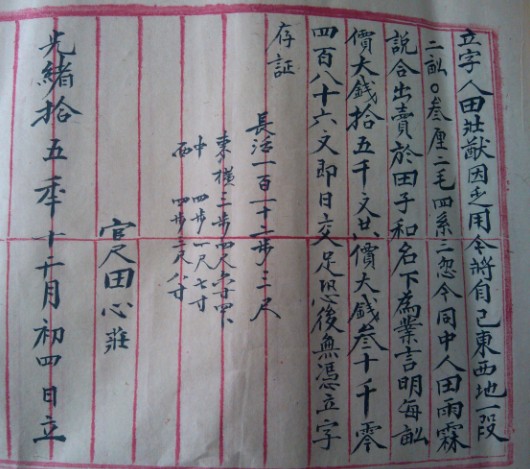 立字人田壯猷因乏用今將自己東西地一段
二畝〇叁厘二毛四系三忽今同中人田雨霖
說合出賣於田子和名下為業言明每畝
價大錢拾五千文共價大錢叁十千零
四百八十六文即日交足恐後無憑立字
存証
長活一百一十二步〇三尺
東橫三步四尺六寸
中 四步一尺七寸
西 四步二尺八寸
官尺田心莊
光緒拾五年十二月初四日立